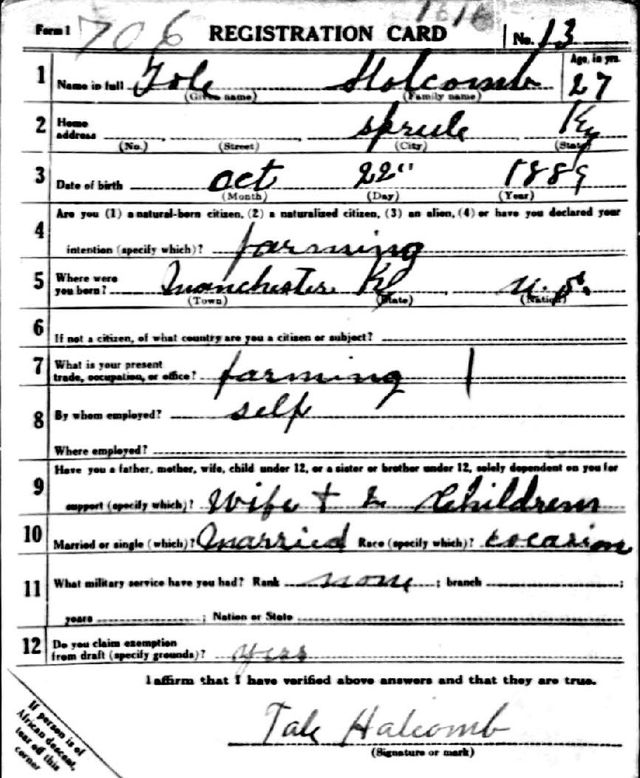 1616
Form 1 706 REGISTRATION CARD No. 13
1 Name in full Tole Holcomb Age, in yrs. 27
(Given name) (Family name)
2 Home address Sprule Ky
(No.) (Street) (City) (State)
3 Date of birth Oct 22" 1889
(Month) (Day) (Year)
4 Are you (1) a natural-born citizen, (2) a naturalized citizen, (3) an alien, (4) or have you declared your
intention (specify which)? farming
5 Where were you born? Manchester Ky U. S.
(Town) (State) (Nation)
6 If not a citizen, of what country are you a citizen or subject?
7 What is your present trade, occupation, or office? farming
8 By whom employed? self
Where employed?
9 Have you a father, mother, wife, child under 12, or a sister or brother under 12, solely dependent on you for
support (specify which)? Wife + 2 Children
10 Married or single (which)? Married Race (specify which)? Cocasion
11 What military service have you had? Rank none ; branch ;
years ; Nation or State
12 Do you claim exemption from draft (specify grounds)? yess
I affirm that I have verified above answers and that they are true.
Tale Halcomb
(Signature or mark)
If person is of
African descent,
tear off this
corner